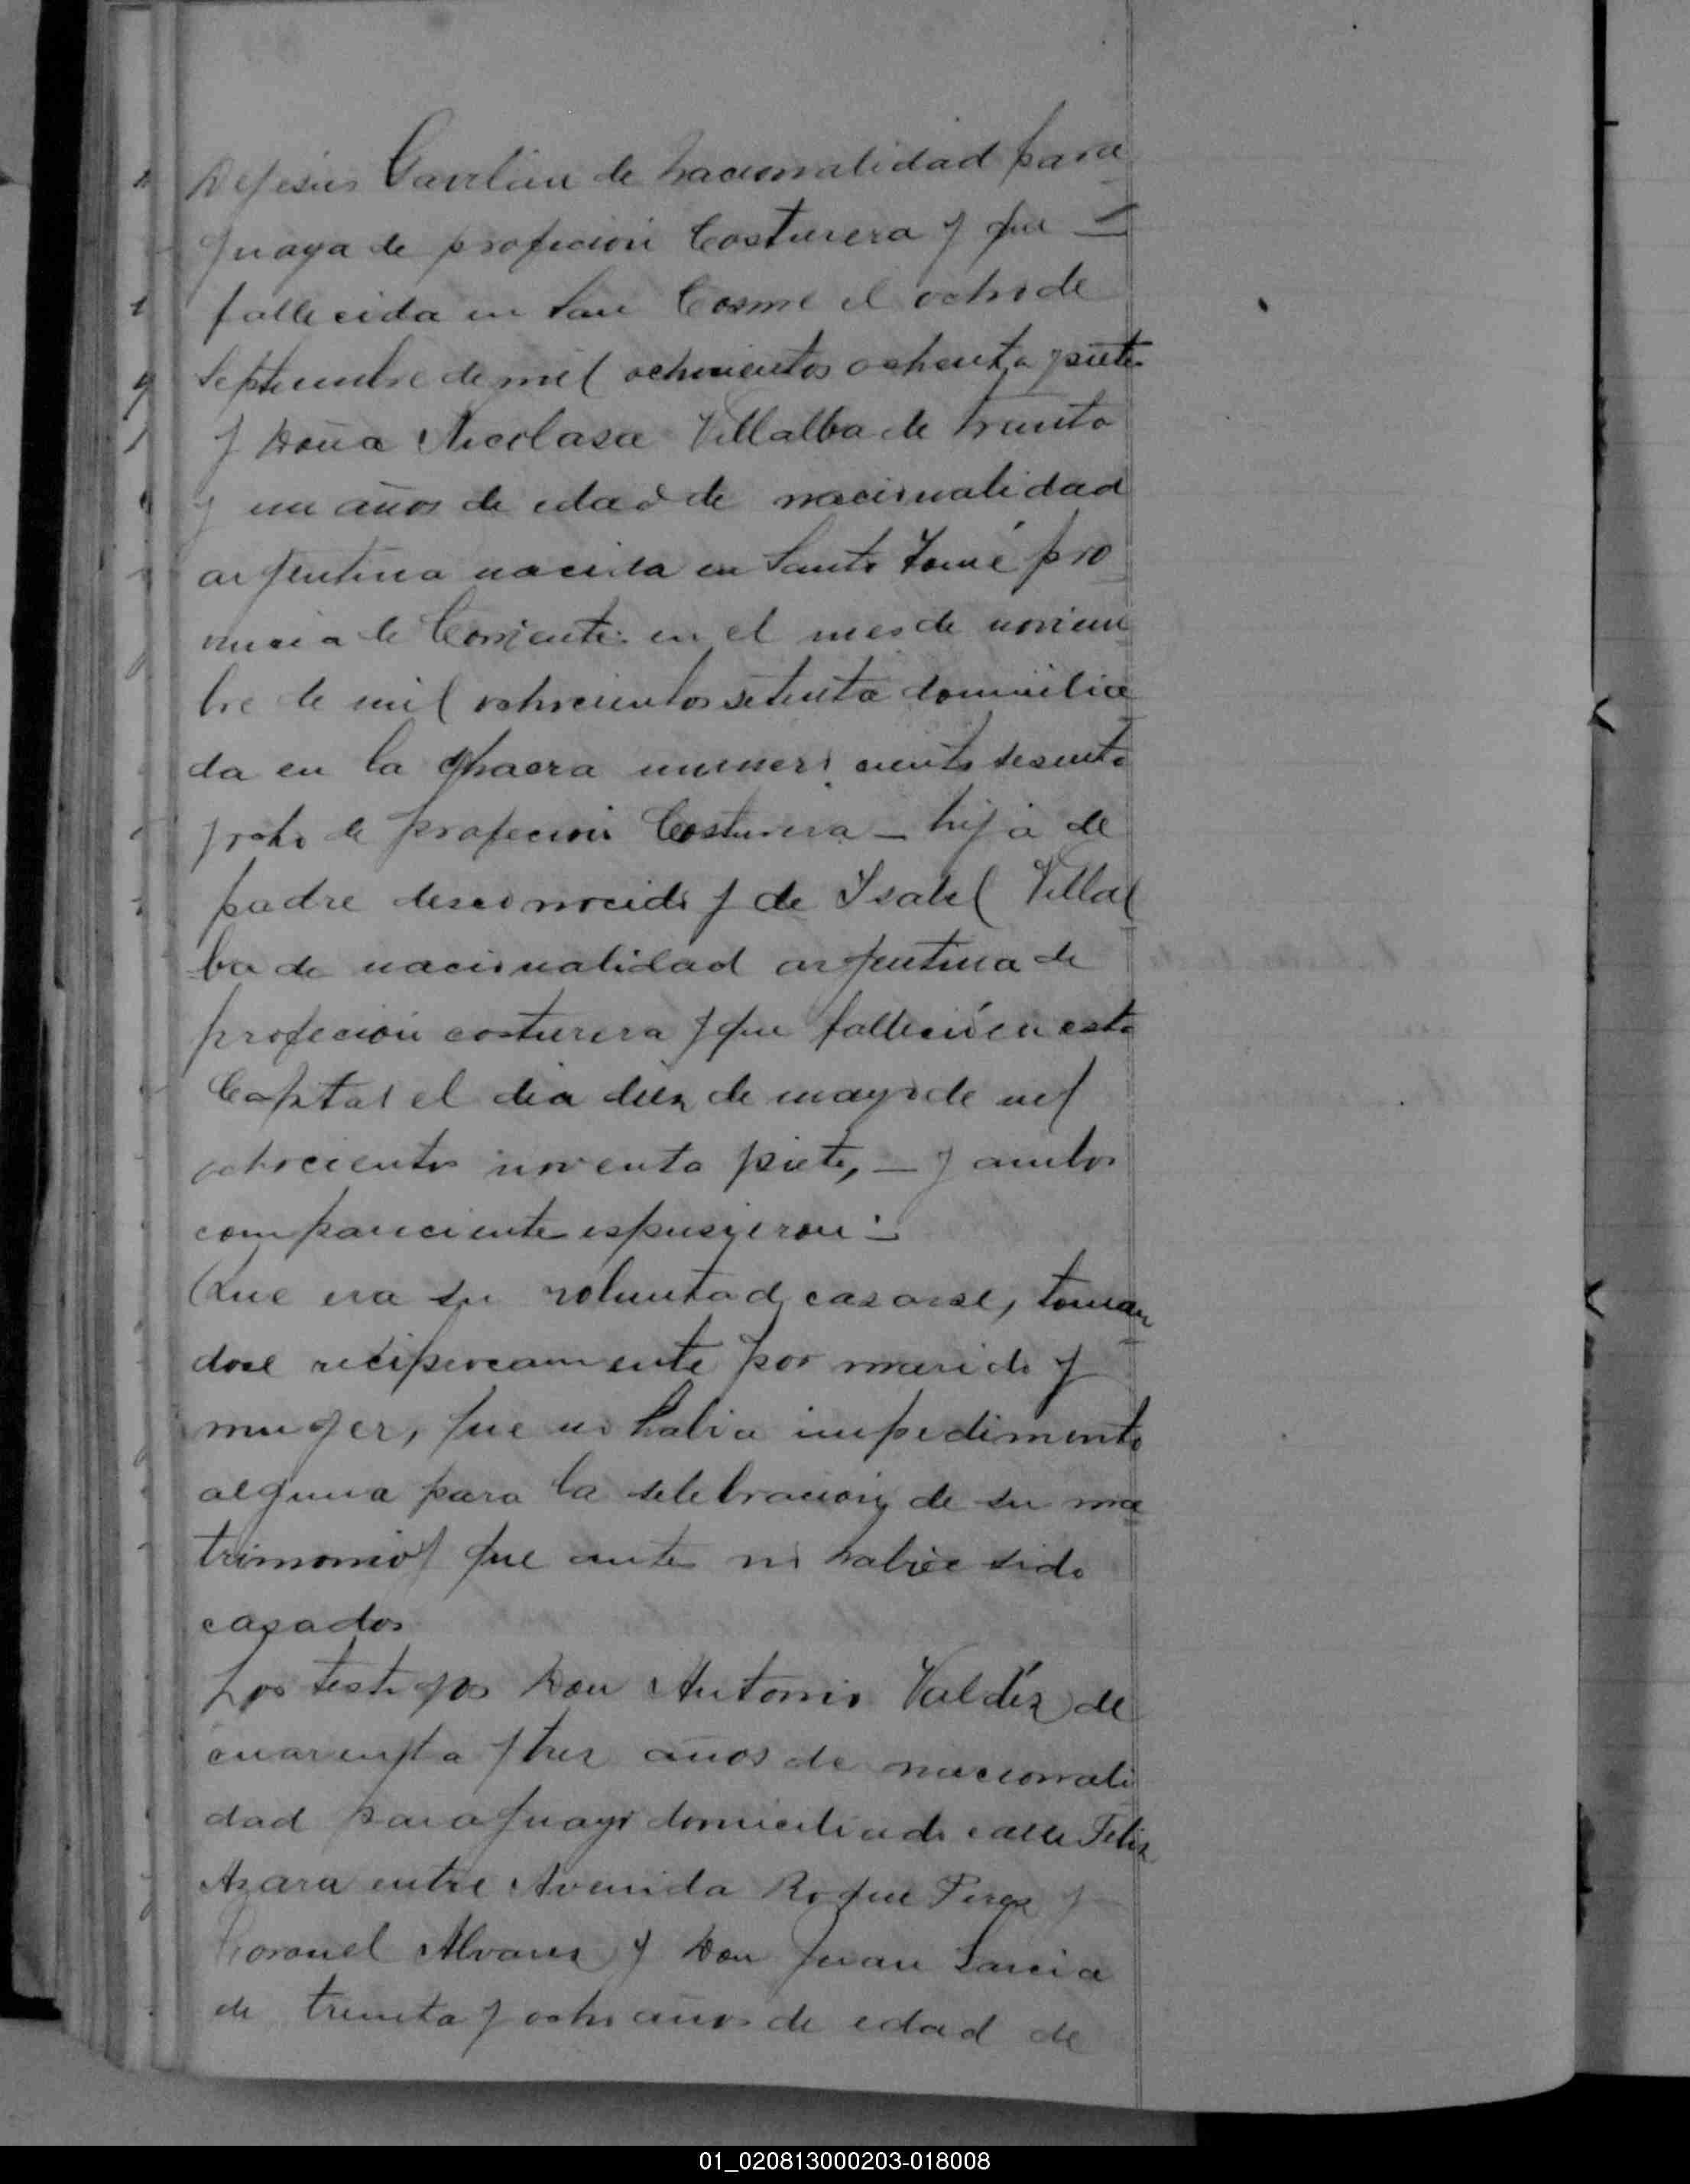 DeJesús Gavilan de nacionalidad para
guaya de profecion Costurera y que
fallecida en San Cosme el ocho de
Septiembre de mil ochocientos ochenta y siete
y Doña Nicolasa Villalba de treinta
y un años de edad de nacionalidad
argentina nacida en Santo Tomé pro
vincia de Corriente en el mes de noviem
bre de mil ochocientos setenta domicilia
da en la chacra numero ciento sesenta
y ocho de profecion Costurera — hija de
padre desconocido y de Ysabel Villal
ba de nacionalidad argentina de
profecion costurera y que falleció en esta
Capital el dia diez de mayo de mil
ochocientos noventa y siete, — y ambos
compareciente espusieron :
Que era su voluntad casarse, toman
dose reciprocamente por marido y
muger, que no habia impedimento
alguna para la selebracion de su ma
trimonio y que ante no habia sido
casados
Los testigos Don Antonio Valdéz de
cuarenta y tres años de nacionali
dad paraguayo domiciliado calle Felix
Azara entre Avenida Roque Perez y
Coronel Alvarez y Don Juan Garcia
de treinta y ocho años de edad de
01_020813000203-018008